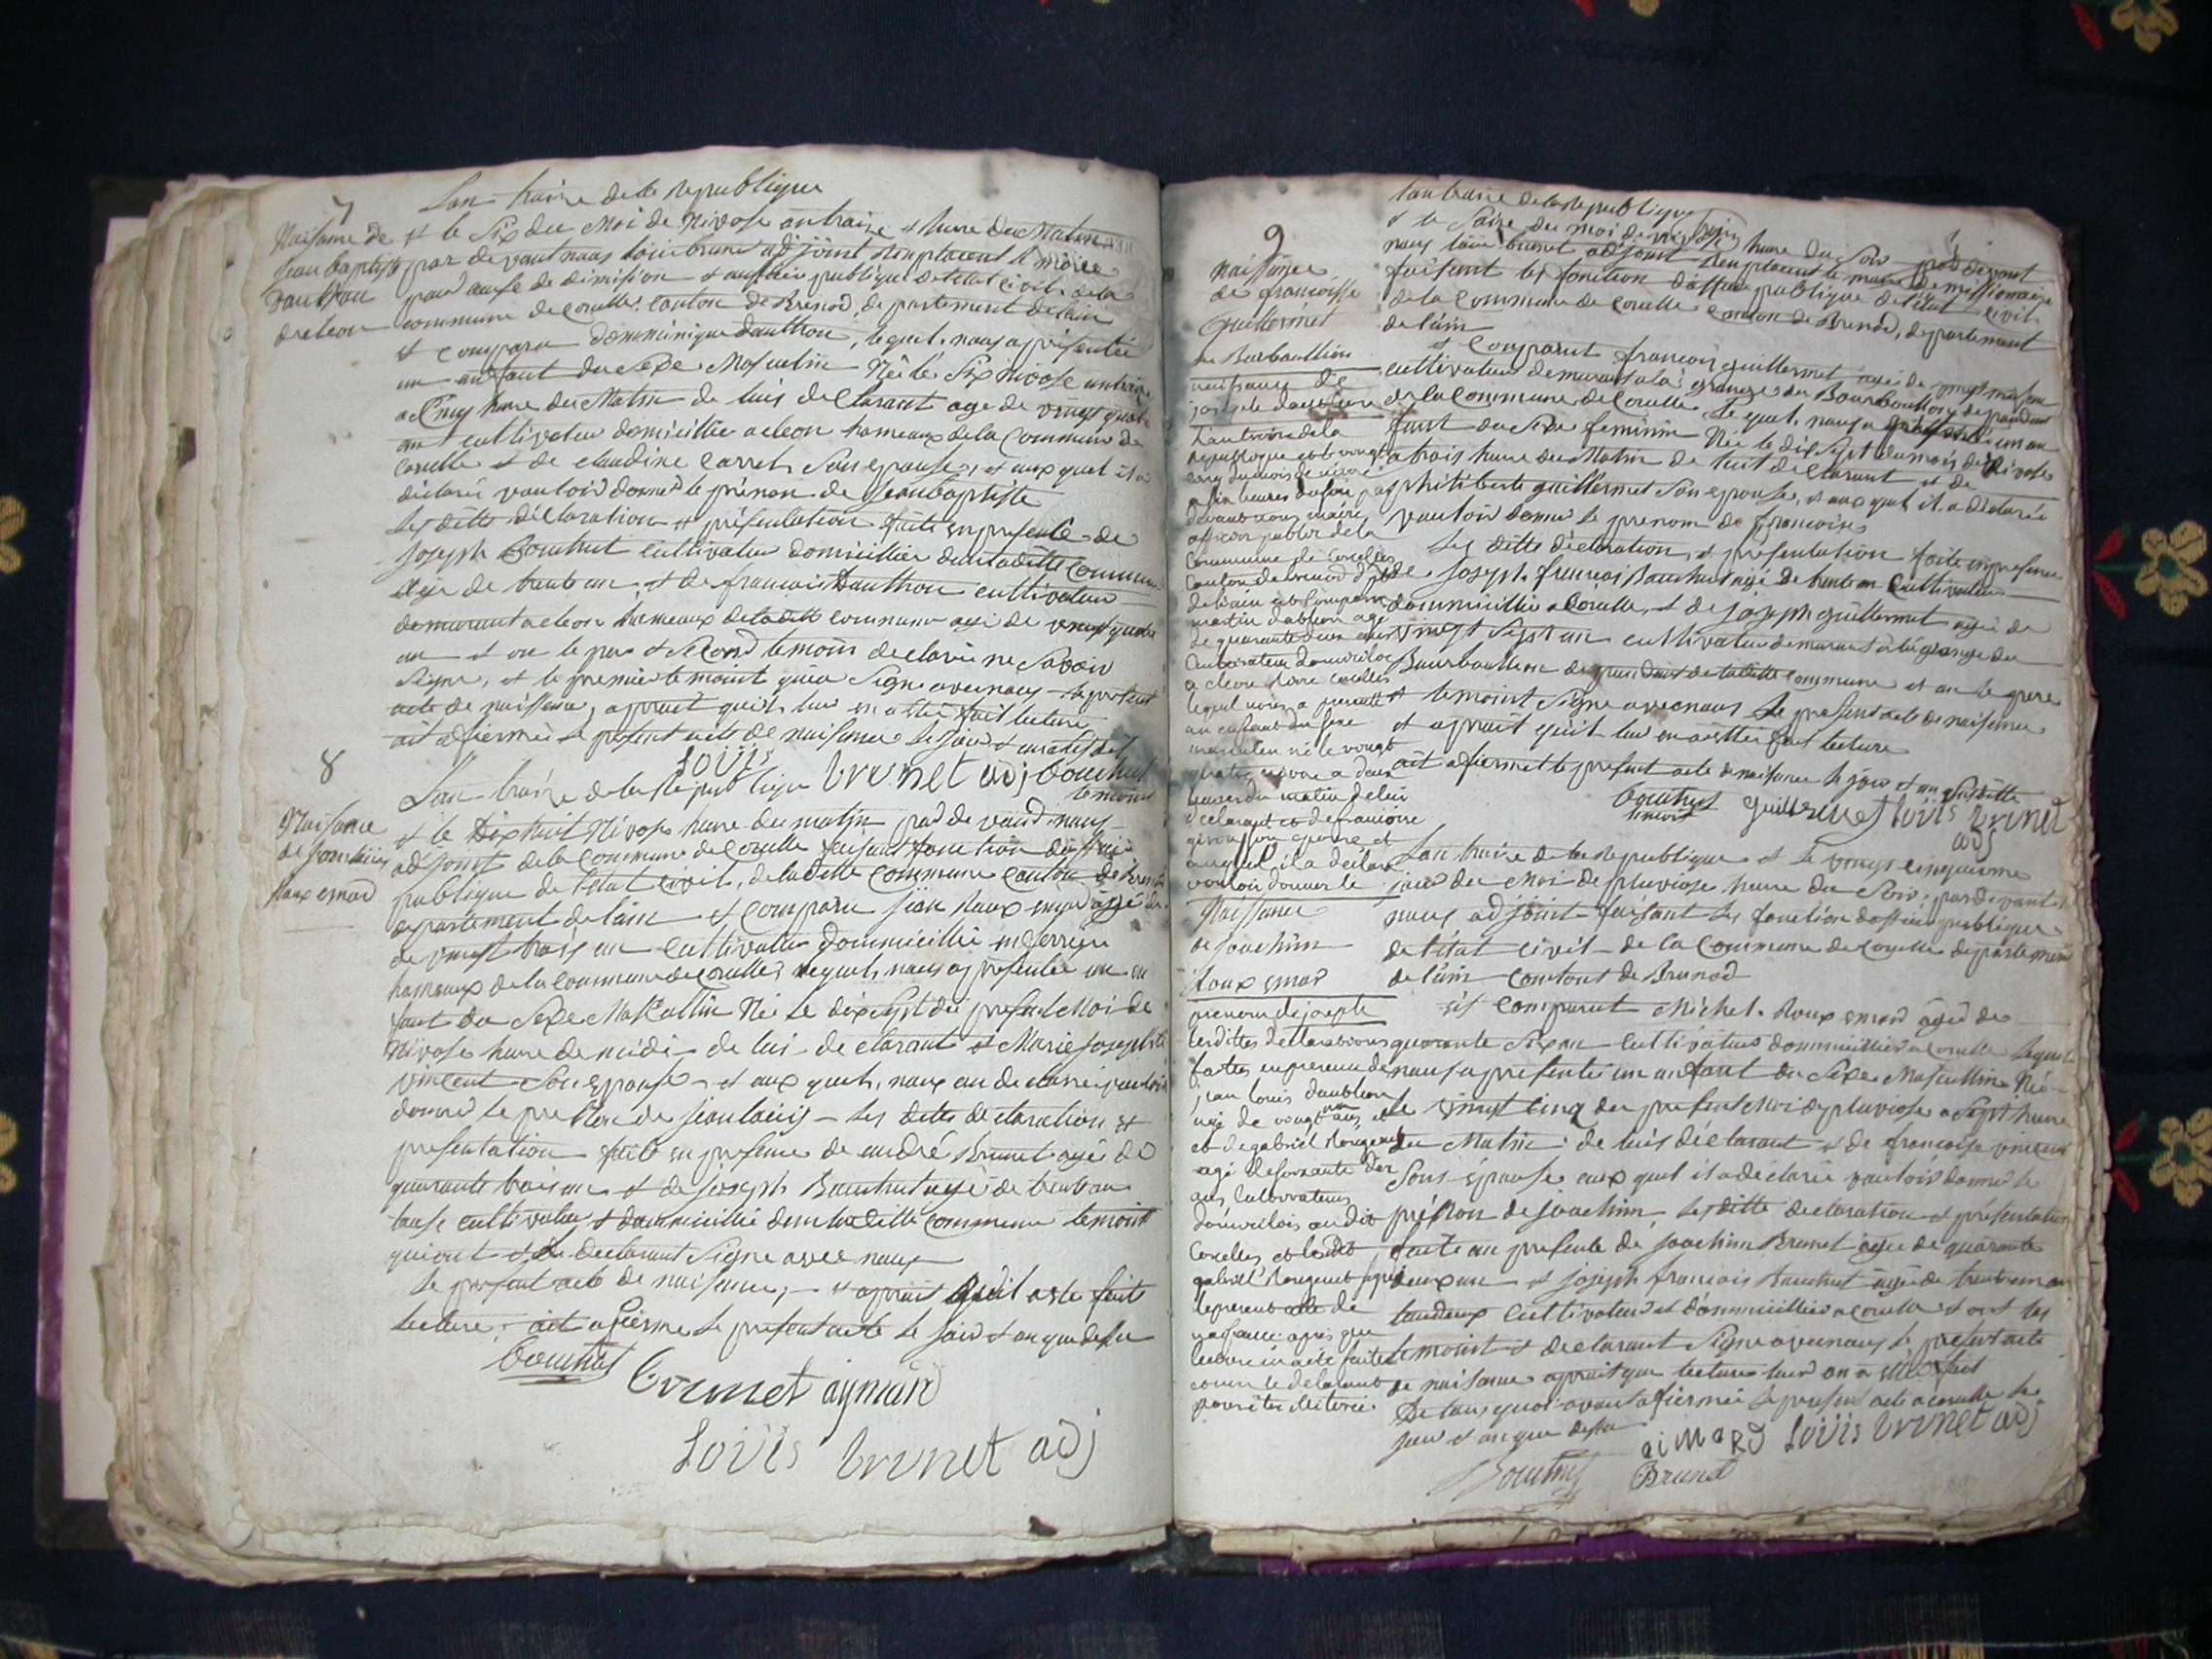 7
Naissance de
Jean baptiste
dauthon
de cleon
L'an traize de la Republique
et le Six du Moi de Nivose an traize heure du Matin
par de vant nous louis brunet adjoint remplacent le maire
pour cause de dimision et officier publique de letat civil de la
commune de corcelle canton de Brenod, departement de lain
et comparu domminique dauthon, lequel nous a présentée
un anfant du Sexe Masculin Née le Six nivose an traize
a Cinq heure du Matin de luis declarant age de vingt quatre
an cultivateur domicillié a cleon hameaux de la Commune de
Corcelle et de claudine Carret, Son epouse, et aux quel il a
déclaré vouloir donner le prénom de Jean baptiste
les ditte déclaration et présentation faite en presente de
Joseph Bouchut cultivateur domicillié dans laditte Commune
age de trente an, et de francois Dauthon cultivateur
demeurant a cleon hameaux de ladite commune agé de vingt quatre
an et on le père et Second temoin declaré ne Savoir
Signer, et le premier temoint qui a Signe avec nous le present
acte de naissance, apprait qu'il lui en a étté fait lecture
ait afiermée le présent acte de naissance le jour et an
Louis brunet adj bouchut
temoint
8
Naissance
de Jean louis
Roux emard
L'an traize de la Republique
et le Dixhuit Nivose heure du matin par de vand nous
adjoint de la Commune de Corcelle faisant fonction doffisié
publique de l'etat civil, de la ditte commune canton de Brenod
departement de lain et Comparu jean Roux emard agé
de vingt trois an cultivateur dommicillié
hameaux de la Commune de Corcelle, lequel, nous a presentée un an
fant du Sexe Masculin Née Le dixsept du present Moi de
Nivose heure de midi de lui declarant et Marie Josephte
vincent Son epouse et aux quels, nous an declaré vouloir
donner le prénom de Jean louis les dittes declaration et
presentation faite en presence de andré Brunet agé de
quarante trois an et de joseph Bouchut agé de trente an
touse cultivateur et dommicillié dans la ditte Commune temoint
qui ont et le declarant Signe avec nous
le present acte de naissance, et apprait qu'il a été fait
lecture, ait afierme le present acte le jour et an que dessu
bouchut
Brunet aymard
Louis brunet adj
9
Naissance
de francoisse
Guillermet
du Bourboullion
L'an traize de la Republique
et le Saize du moi de nivose heure du Soir par devant
nous louis brunet adjoint remplacent le maire demissionnaire
faisant les fonction d'offisié publique de l'etat civil
de la Commune de Corcelle Canton de Brenod, departement
de lain
et Comparut francois guillermet agé de vingt
cultivateur demeurant a la grange du Bourboullion dependant
de la Commune de Corcelle, le quel nous a presentée un an
fant du Sexe feminin Née le dix Sept du mois de Nivose
a trois heure du Matin de luit declarant et de
philiberte guillermet Son epouse, et aux quel il a declarée
vouloir donner le prenom de francoise
Les ditte déclaration, et présentation faite en presence
de Joseph francois Bouchut agé de trente an Cultivateur
dommicillié a Corcelle, et de joseph guillermet agé de
vingt Sept an cultivateur demeurant a la grange du
Bourboullion dependant de ladite commune et an le père
et temoint Signe avec nous le present acte de naissance
et apprait qu'il lui en a étté fait lecture
ait afiermet le present acte de naissance le jour et an Susditte
bouchut
temoint
guillermet Louis brunet
adj
naissance de
joseph daublion
L'an treize de la
Republique et le vingt
cinq du mois de nivose
a six heures du soir par
devant nous maire
officier public de la
Commune de Corcelles
Canton de brenod dpt
de lain est comparu
martin daublion agé
de quarante deux ans
Cultivateur domicilié
a cleon
lequel nous a présenté
un enfant du sexe
masculin né le vingt
quatre nivose a deux
heures du matin de lui
declarant et de francoise
son epouse et
auquel il a déclaré
vouloir donner le
prenom de joseph
les dittes declarations
faites en presence de
jean louis daublion
agé de vingt ans, et
et de gabriel Rougeaud
agé de soixante
ans Cultivateurs
domiciliés audit
Corcelles et ledit
gabriel Rougeaud signé
le present acte de
naissance apres que
lecture en a été faite
comme le declarant
pour être illiteré.
Naissance
de Joachim
Roux emard
L'an traize de la Republique et le vingt cinquieme
jour du Moi de pluviose heure du Soir, par devant
nous adjoint faisant les fonction dofficié publique
de l'etat civil de la Commune de Corcelle departement
de lain Canton de Brenod
est Comparut Michel Roux emard agé de
quarante Six an Cultivateur dommicillié a Corcelle lequel
nous a presentée un anfant du Sexe Masculin Né
le vingt cinq du present Moi de pluviose a Sept heure
du Matin de luis déclarant et de francoise vincent
Sons épouse aux quel il a déclarée vouloir donner le
prénom de joachim, les ditte declaration et présentation
faite an presente de joachim Brunet agée de quarante
deux an et joseph francois Bouchut agé de trente un an
toudeux cultivateur et dommicillié a Corcelle et ont les
temoint et declarant Signe avec nous le present acte
de naissance apprait que lecture leur an a étté fait
De tous quoi avont afiermée le present acte a corcelle le
jour et an que dessu
aimard Louis brunet adj
Bouchut Brunet